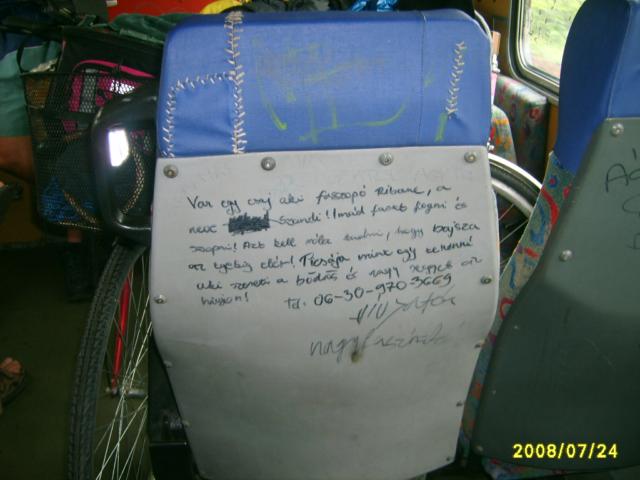 Van egy csaj aki faszopó Ribanc, a
neve Szandi! Imád faszt fogni és
szopni! Azt kell róla tudni, hogy bajsza
az egekig elér! Picsája mint egy tehenné
aki szereti a büdös és nagy az
hívjon! Tel. 06-30-970-3669
nagy
2008/07/24